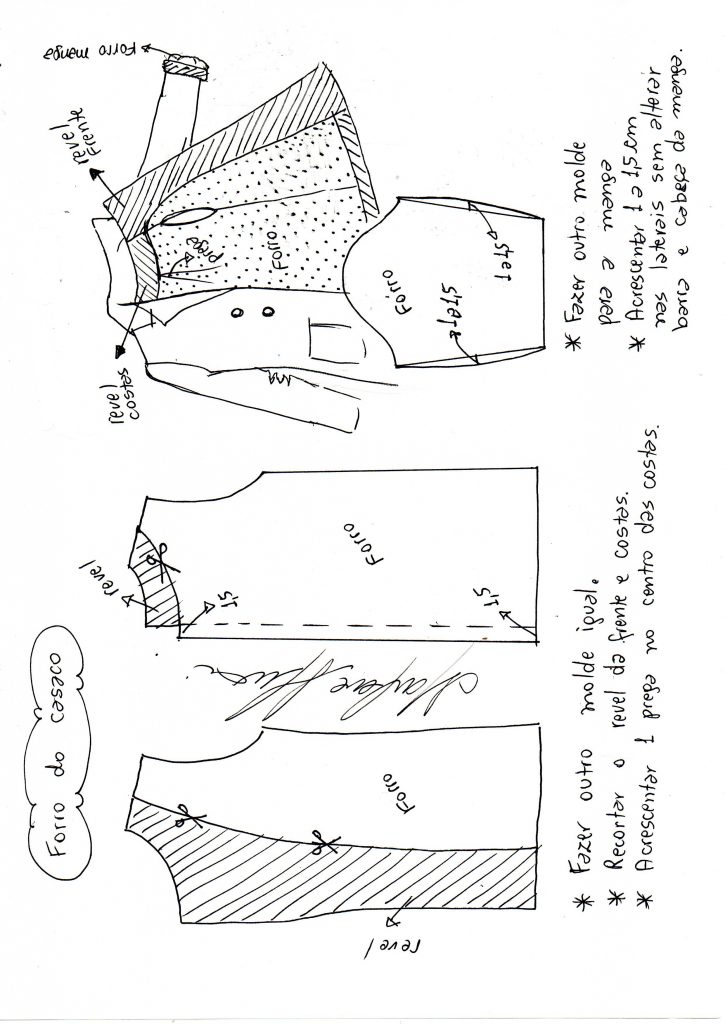 Forro do casaco
revel
Forro
revel
Forro
1,5
1,5
revel costas
revel Frente
Forro manga
prega
Forro
Forro
1a1,5
1a1,5
* Fazer outro molde igual.
* Recortar o revel da frente e costas.
* Acrescentar 1 prega no centro das costas.
* Fazer outro molde
para a manga
* Acrescentar 1 a 1,5 cm
nas laterais sem alterar
barra e cabeça da manga.